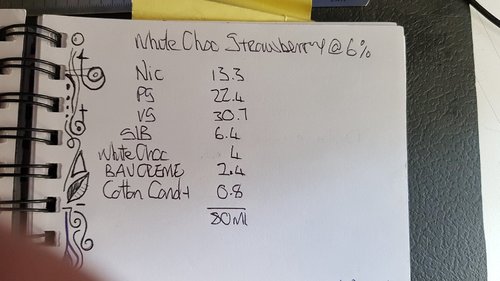 White Choc Strawberry @ 6%
Nic 13.3
PG 22.4
VG 30.7
S/B 6.4
White Choc 4
BAV CREME 2.4
Cotton Cand+ 0.8
80ml